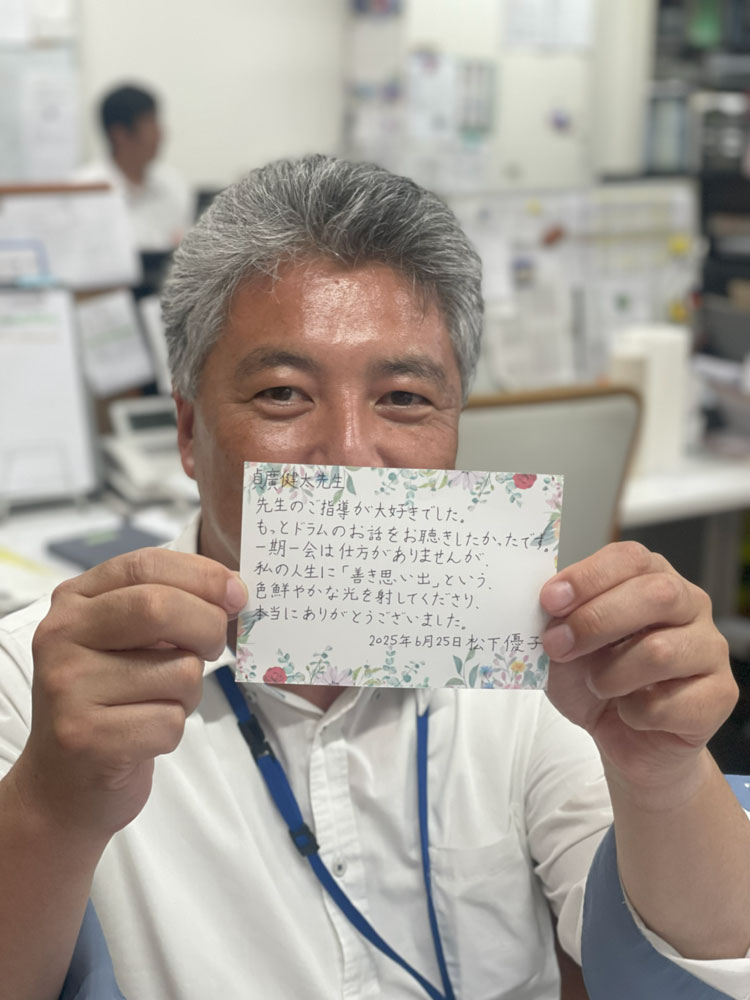 貞廣健太先生
先生のご指導が大好きでした。
もっとドラムのお話をお聴きしたかったです。
一期一会は仕方がありませんが、
私の人生に「善き思い出」という、
色鮮やかな光を射してくださり、
本当にありがとうございました。
2025年6月25日 松下優子